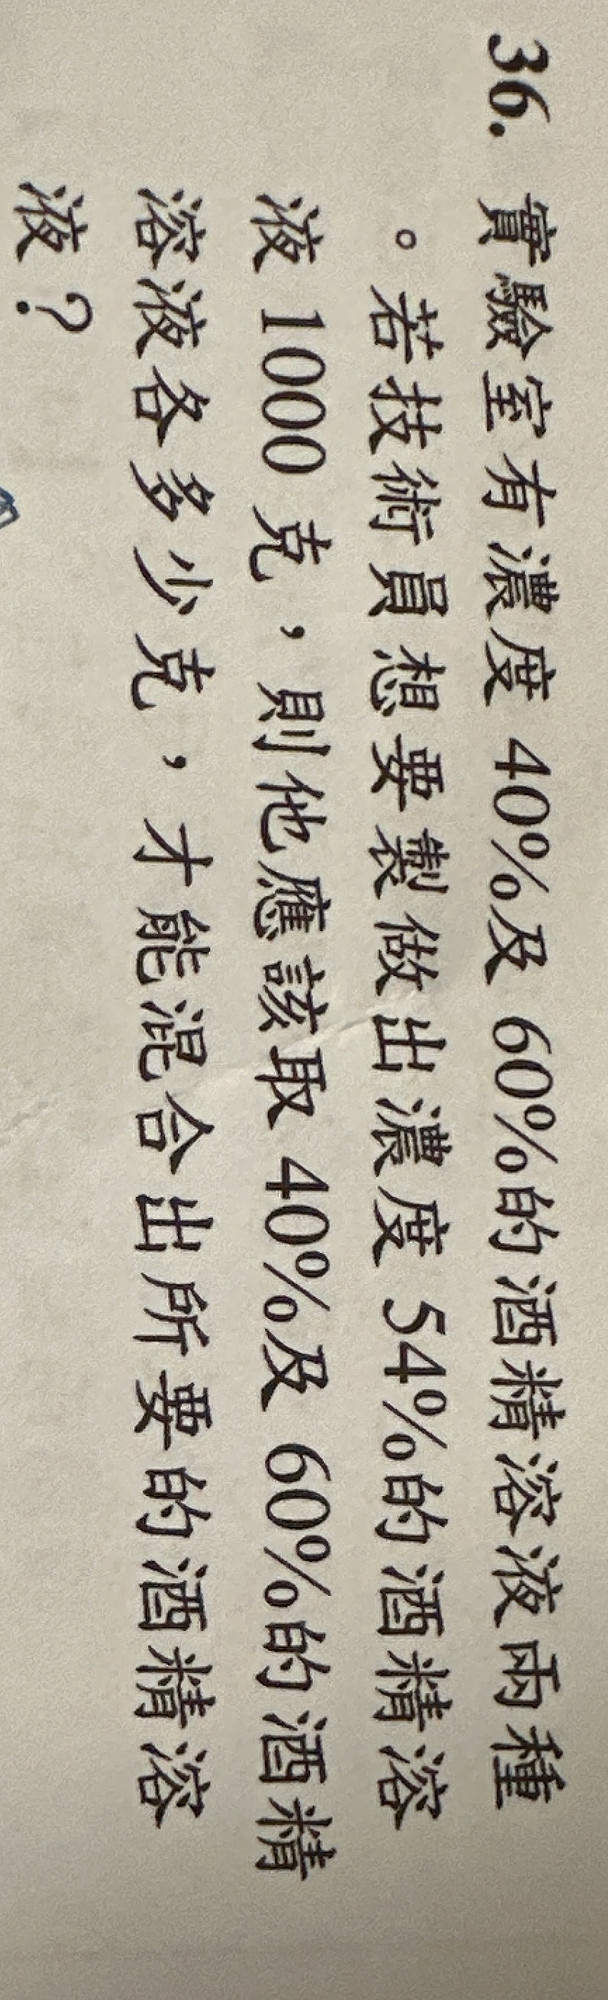 36. 實驗室有濃度 40%及 60%的酒精溶液兩種
。若技術員想要製做出濃度 54%的酒精溶
液 1000 克，則他應該取 40%及 60%的酒精
溶液各多少克，才能混合出所要的酒精溶
液？